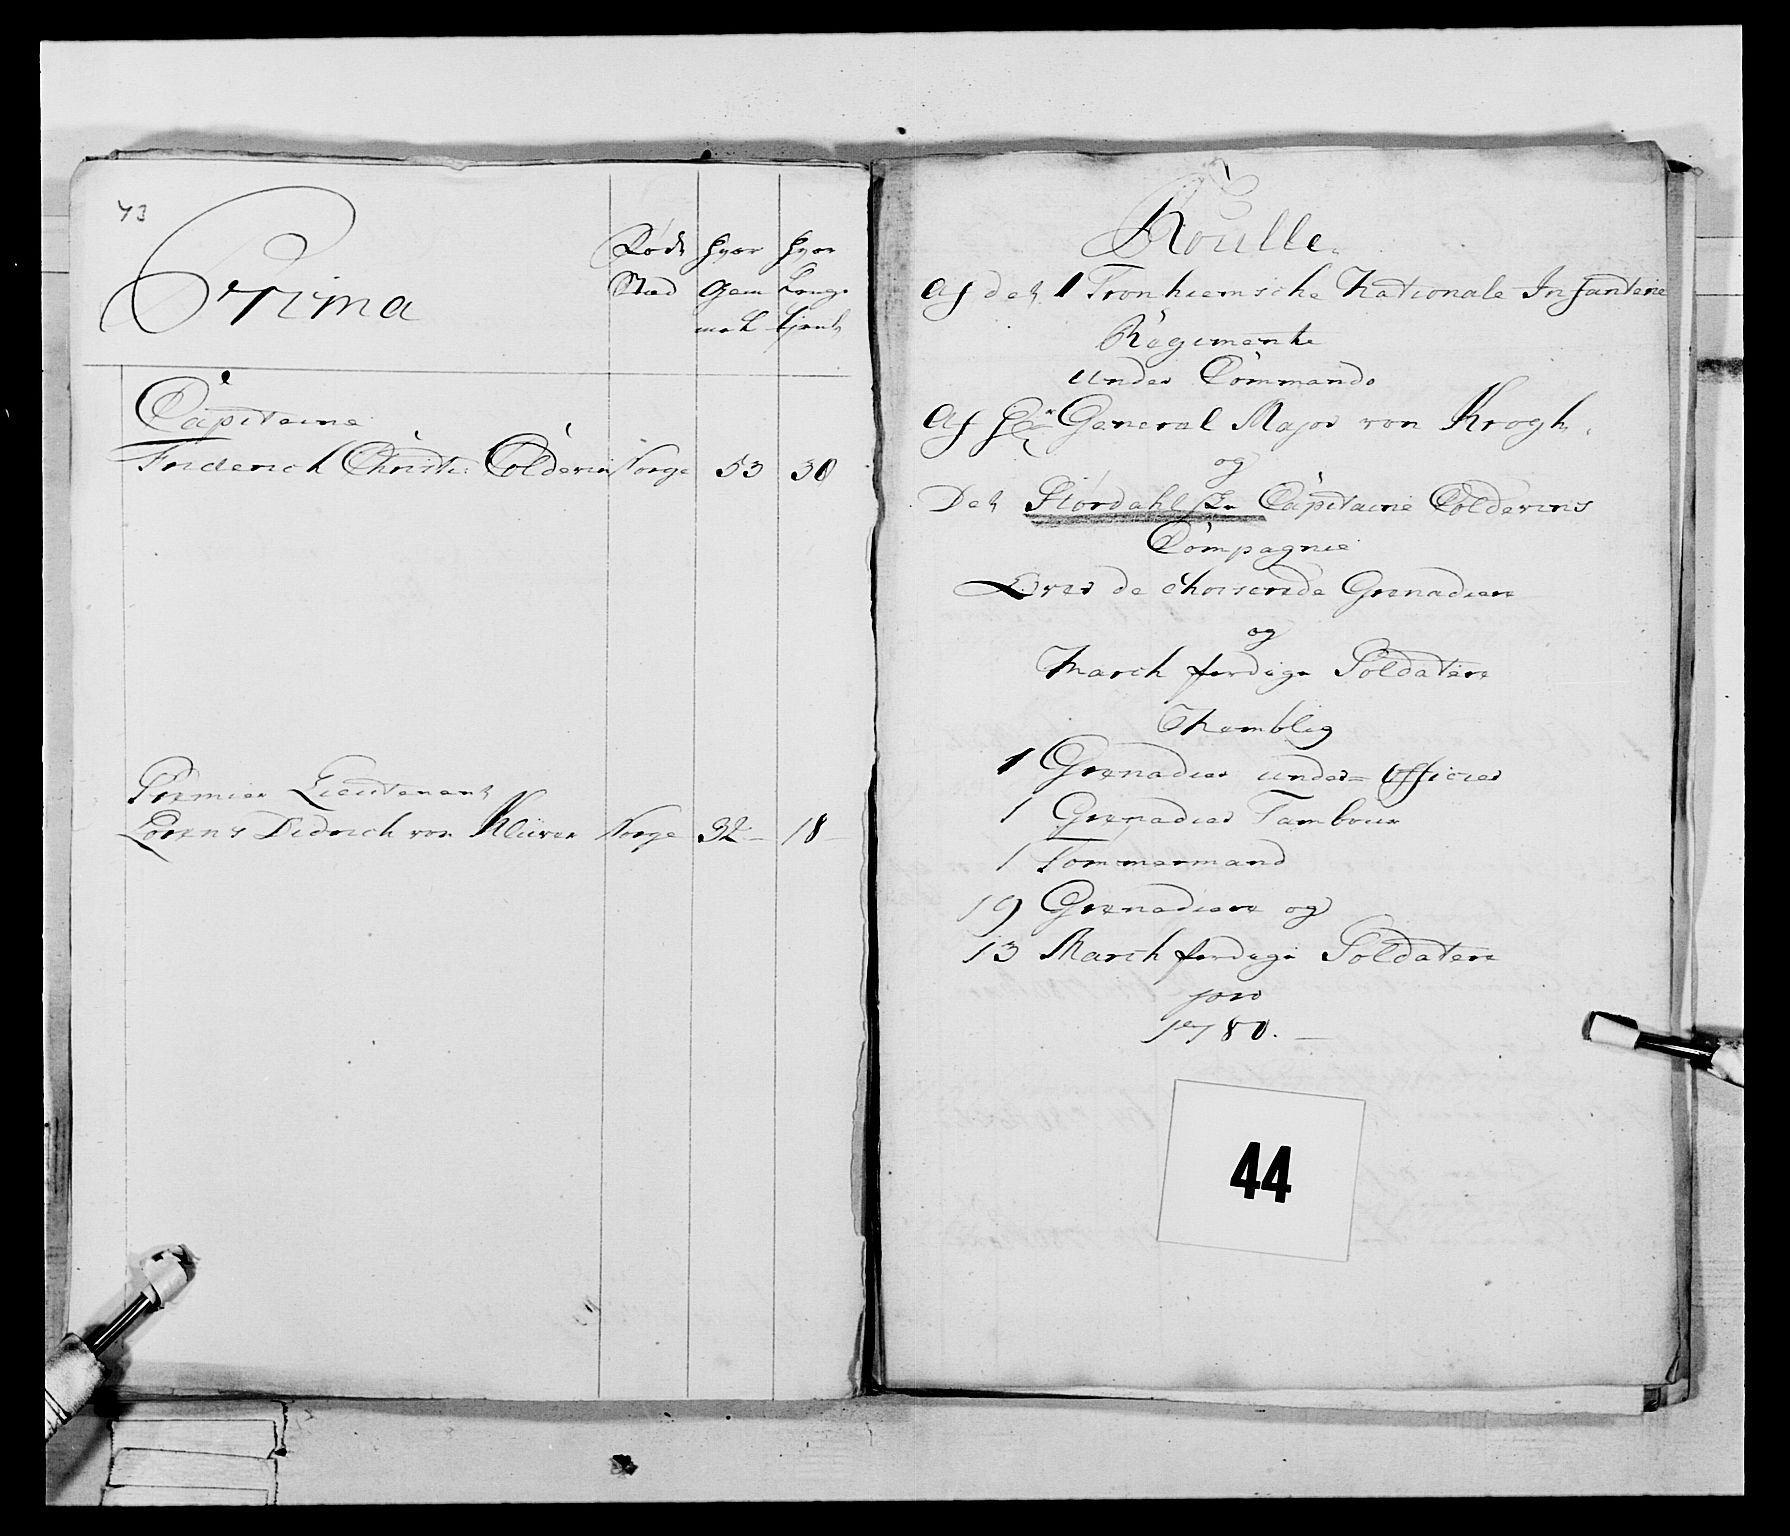 43
Prima
Føde Hvor Hvor
Stæd Gam Længe
mel tient
Capitaine
Friderich Christi: Colderin Norge 53 30
Premier Lieutenant
Lorens Didrich von Klüver Norge 32 18
Roulle
Af det 1 Tronhiemsche Nationale Infanterie
Regimente
under Commando
Af Hr General Major von Krogh
og
Det Størdahlske Capitaine Colderins
Compagnie
Over de choiserede Grenadiere
og
March færdige Soldatere
Nemblig
1 Grenadier under=Officier
1 Grenadier Tambour
1 Tømmermand
19 Grenadiere og
13 March færdige Soldatere
pro
1780.
44